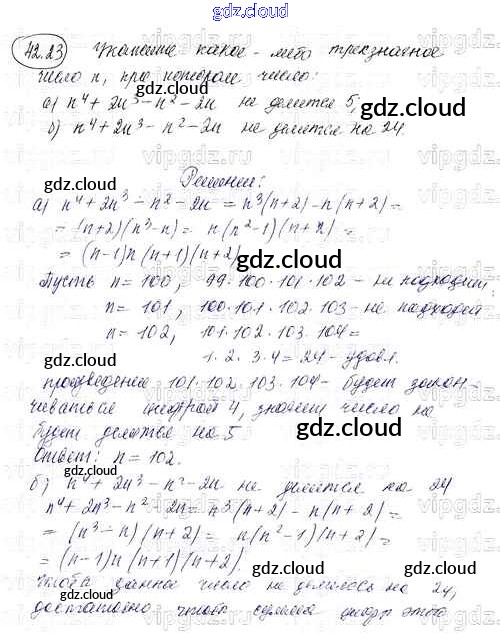 gdz.cloud
42.23 Укажите какое-либо трехзначное
число n, при котором число:
а) n⁴ + 2n³ - n² - 2n не делится 5,
gdz.cloud
б) n⁴ + 2n³ - n² - 2n не делится на 24.
gdz.cloud
Решение:
gdz.cloud
а) n⁴ + 2n³ - n² - 2n = n³(n+2) - n(n+2) =
= (n+2)(n³-n) = n(n²-1)(n+2) =
= (n-1)n(n+1)(n+2)
gdz.cloud
Пусть n = 100, 99·100·101·102 - не подходит
n = 101, 100·101·102·103 - не подходит
n = 102, 101·102·103·104 =
gdz.cloud
1·2·3·4 = 24 - удовл.
произведение 101·102·103·104 - будет закан-
чиваться цифрой 4, значит число не
будет делится на 5
gdz.cloud
Ответ: n = 102.
б) n⁴ + 2n³ - n² - 2n не делится на 24
gdz.cloud
n⁴ + 2n³ - n² - 2n = n³(n+2) - n(n+2) =
= (n³-n)(n+2) = n(n²-1)(n+2) =
= (n-1)n(n+1)(n+2).
gdz.cloud
Чтобы данное число не делилось на 24,
достаточно чтобы сумма цифр этого
gdz.cloud